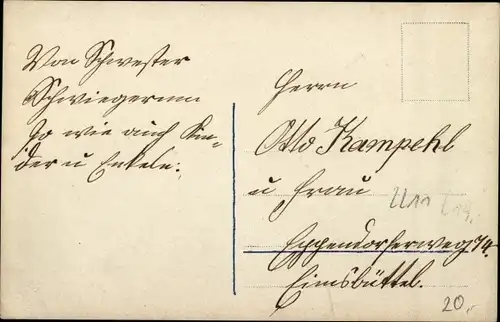 Von Schwester
Schwiegerinn
so wie auch Kin-
der u Enkeln.
Herrn
Otto Kampehl
u Frau
Eppendorferweg 74.
Eimsbüttel.
20,-